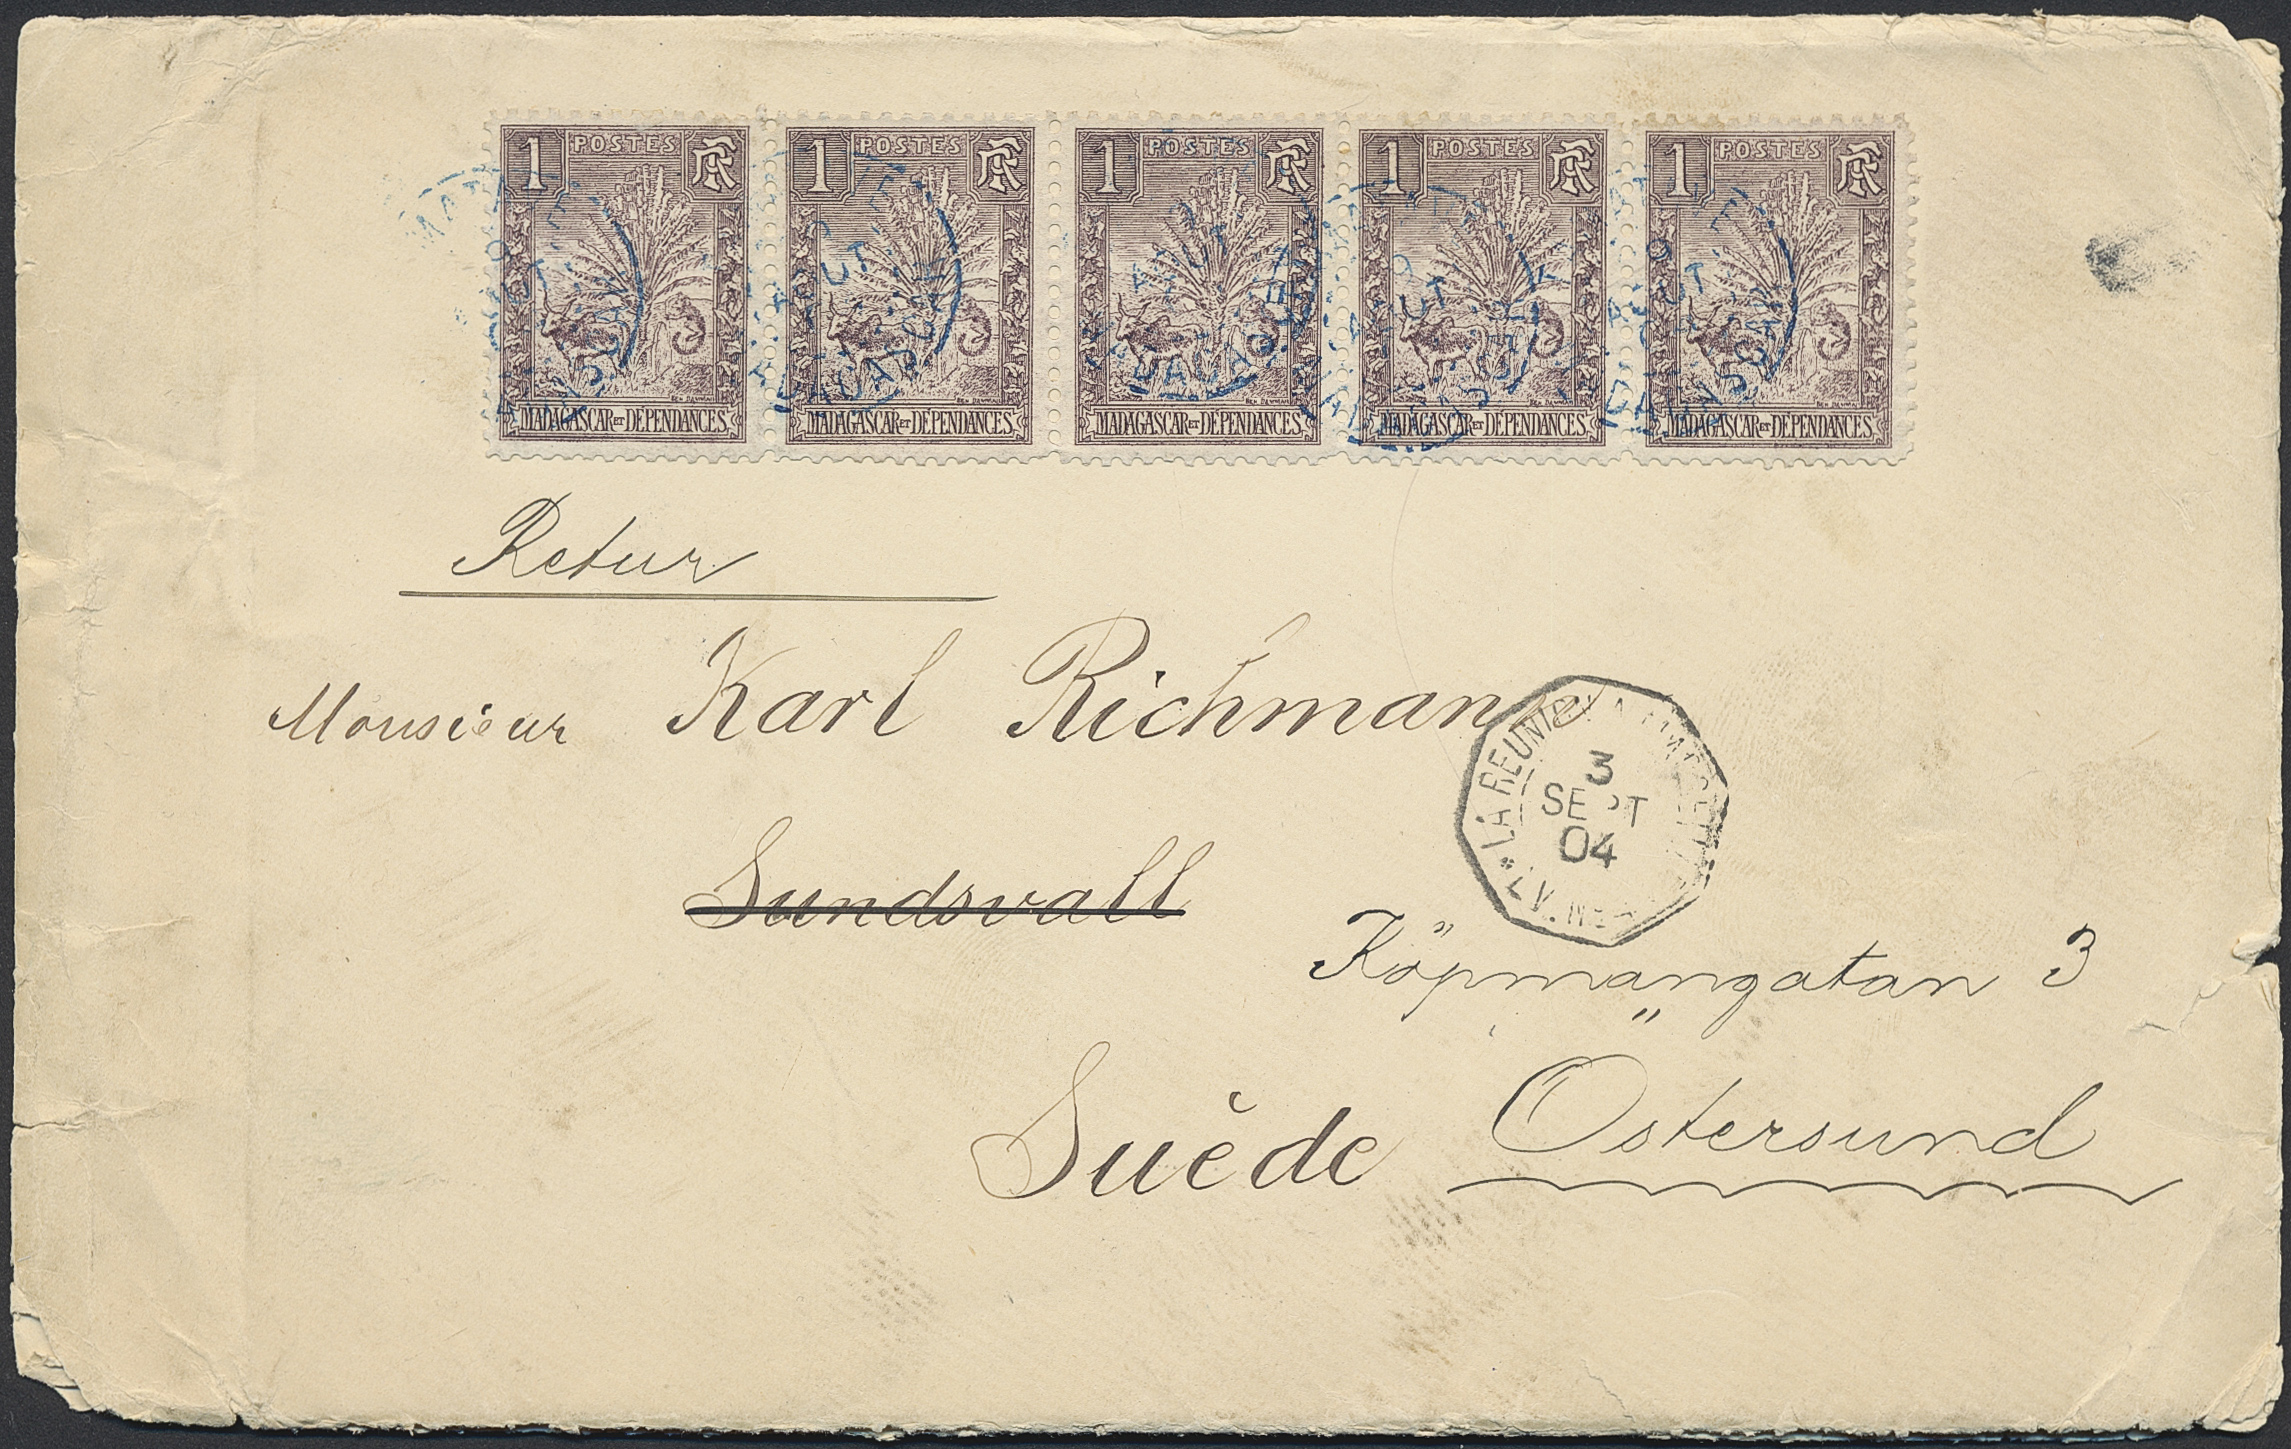 1 POSTES RF
MADAGASCAR ET DÉPENDANCES
1 POSTES RF
MADAGASCAR ET DÉPENDANCES
1 POSTES RF
MADAGASCAR ET DÉPENDANCES
1 POSTES RF
MADAGASCAR ET DÉPENDANCES
1 POSTES RF
MADAGASCAR ET DÉPENDANCES
Retur
Monsieur Karl Richmann
LA REUNION A MARSEILLE
3
SEPT
04
Sundsvall
Köpmangatan 3
Suède Östersund